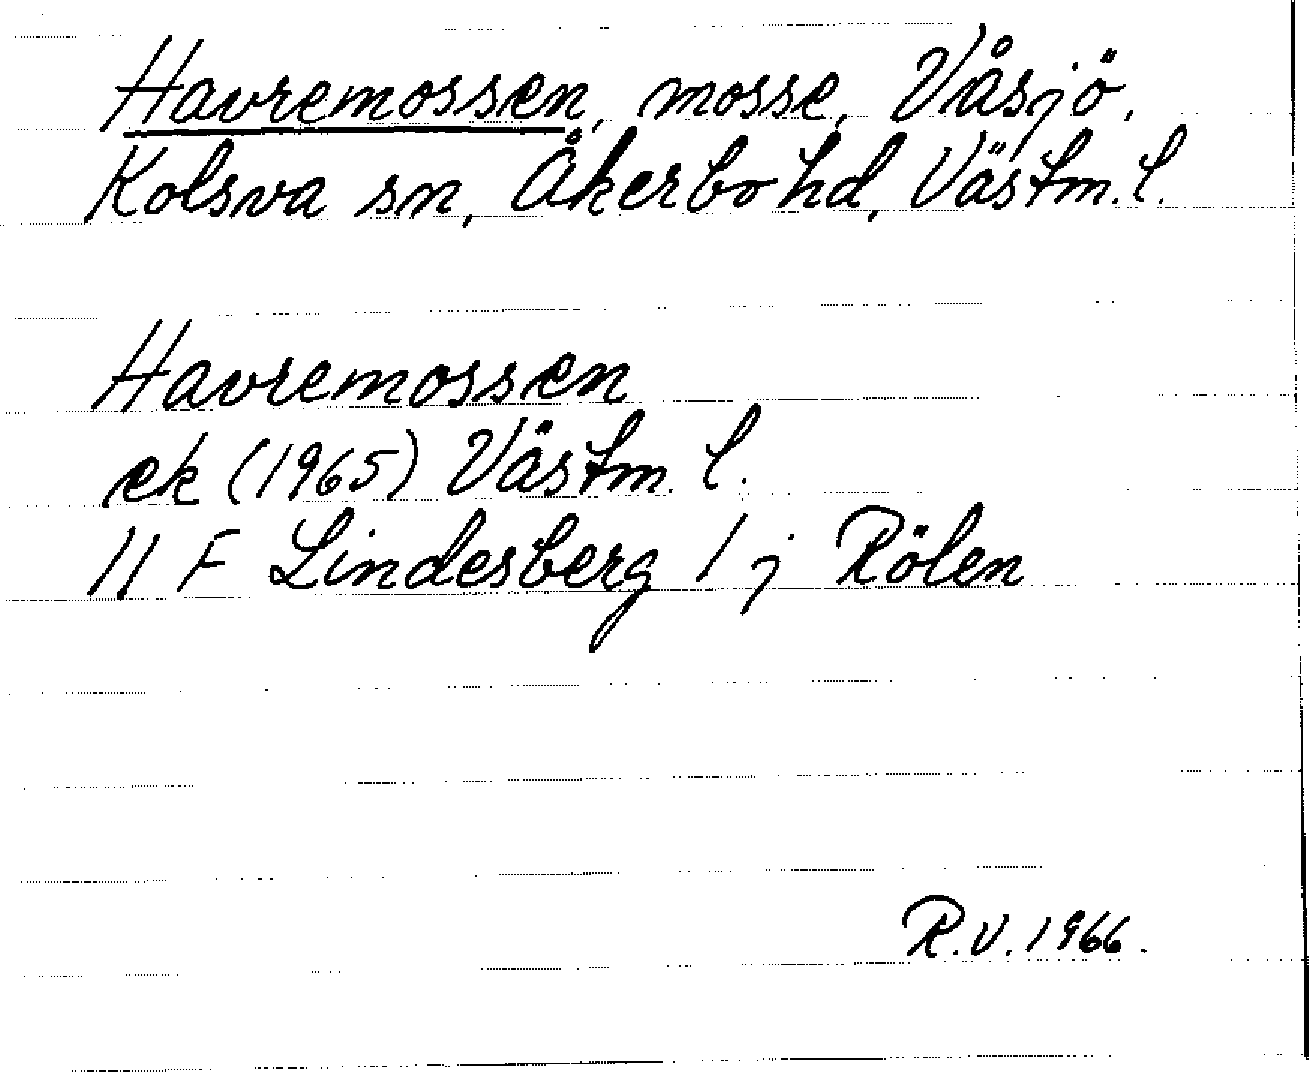 Havremossen, mosse, Våsjö,
Kolsva sn, Åkerbo hd, Västm. l.
Havremossen
ek (1965) Västm. l.
11 F Lindesberg 1 j Rölen
R.V. 1966.